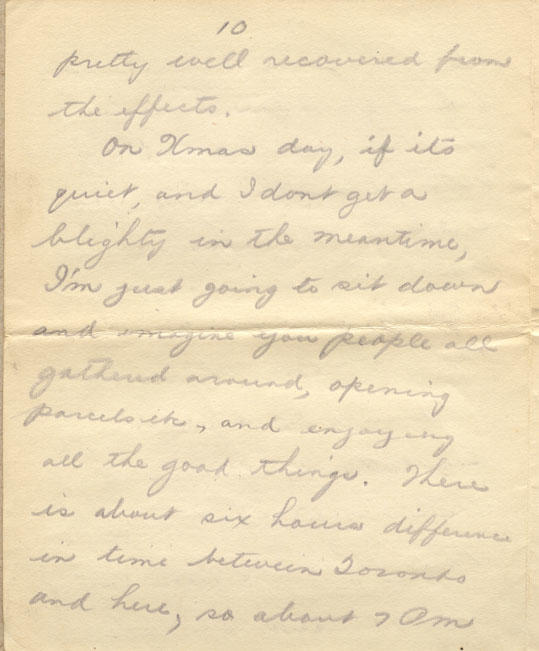 10
pretty well recovered from
the effects.
On Xmas day, if its
quiet, and I dont get a
blighty in the meantime,
I'm just going to sit down
and imagine you people all
gathered around, opening
parcels etc, and enjoying
all the good things. There
is about six hours difference
in time between Toronto
and here, so about 7 Am